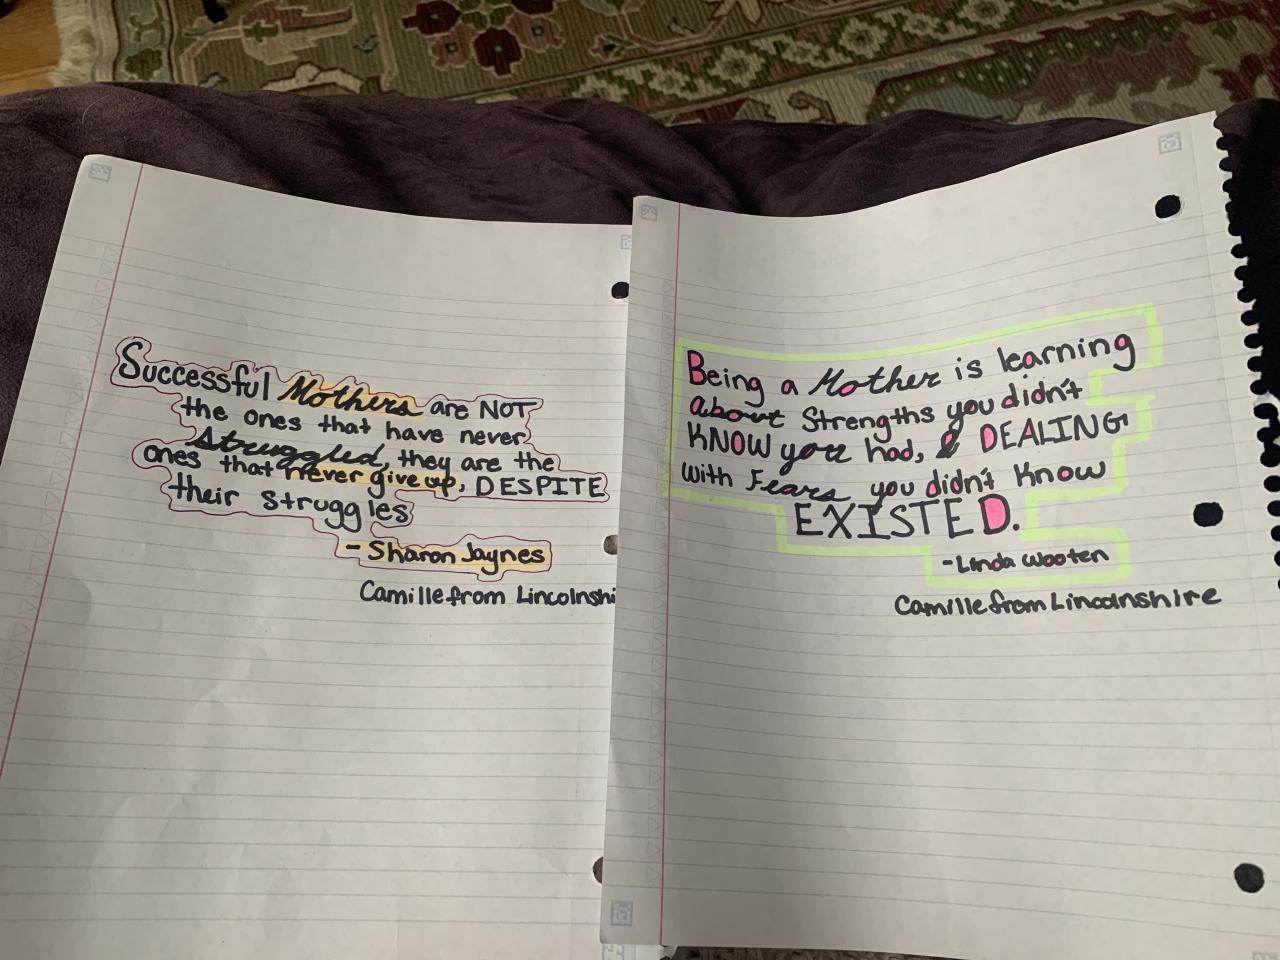 Successful Mothers are NOT
the ones that have never
struggled, they are the
ones that never give up, DESPITE
their struggles
- Sharon Jaynes
Camille from Lincolnshi
Being a Mother is learning
about Strengths you didn't
KNOW you had, & DEALING
with Fears you didn't Know
EXISTED.
- Linda Wooten
Camille from Lincolnshire